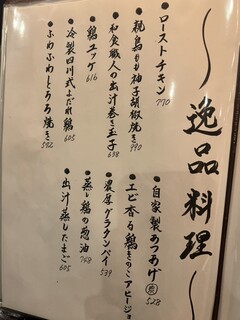 逸品料理
・自家製あつあげ 528
・エビ香る鶏ときのこアヒージョ
・濃厚グラタンパイ 539
・蒸し鶏の葱油 748
・出汁蒸したまご 605
・ローストチキン 770
・親鳥もも柚子胡椒焼き 990
・和食職人の出汁巻き玉子 638
・鶏ユッケ 616
・冷製四川式よだれ鶏 605
・ふわふわとろろ焼き 572